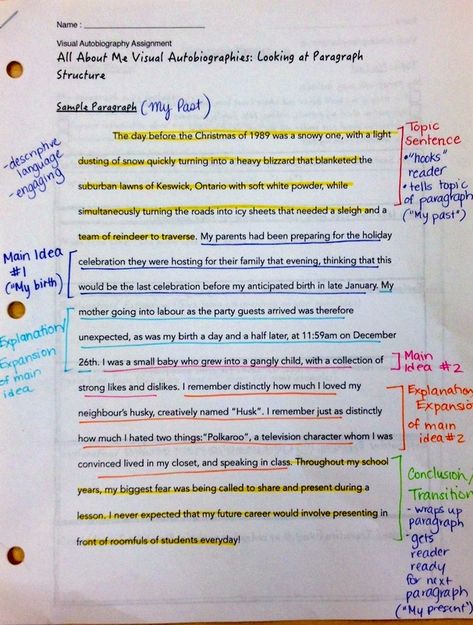 Name :
Visual Autobiography Assignment
All About Me Visual Autobiographies: Looking at Paragraph
Structure
Sample Paragraph (My Past)
The day before the Christmas of 1989 was a snowy one, with a light
dusting of snow quickly turning into a heavy blizzard that blanketed the
suburban lawns of Keswick, Ontario with soft white powder, while
simultaneously turning the roads into icy sheets that needed a sleigh and a
team of reindeer to traverse. My parents had been preparing for the holiday
celebration they were hosting for their family that evening, thinking that this
would be the last celebration before my anticipated birth in late January. My
mother going into labour as the party guests arrived was therefore
unexpected, as was my birth a day and a half later, at 11:59am on December
26th. I was a small baby who grew into a gangly child, with a collection of
strong likes and dislikes. I remember distinctly how much I loved my
neighbour's husky, creatively named "Husk". I remember just as distinctly
how much I hated two things:"Polkaroo", a television character whom I was
convinced lived in my closet, and speaking in class. Throughout my school
years, my biggest fear was being called to share and present during a
lesson. I never expected that my future career would involve presenting in
front of roomfuls of students everyday!
-descriptive
language
-engaging
Main Idea
#1
("My birth)
Explanation/
Expansion
of main
idea
Topic
Sentence
•"hooks"
reader
•tells topic
of paragraph
("My past")
Main
Idea #2
Explanation/
Expansion
of main
idea #2
Conclusion/
Transition
- wraps up
paragraph
-gets
reader
ready
for next
paragraph
("My present")